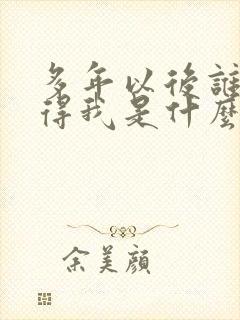 多年以後誰
得我是什麼
余美顏